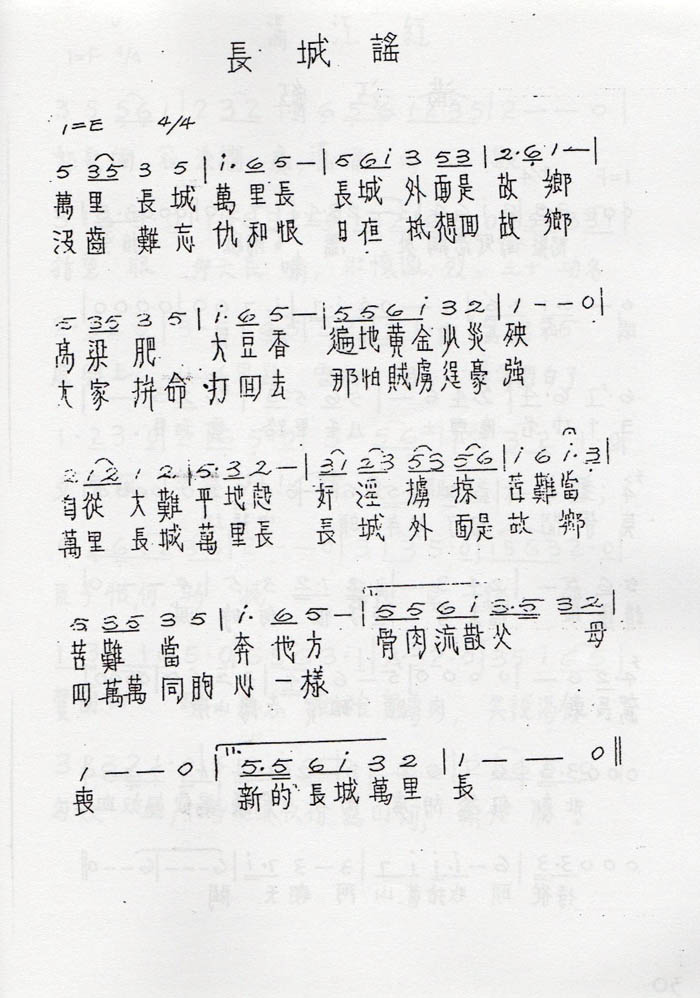 長城謠
1=E 4/4
5 35 3 5 | i· 6 5 — | 5 6i 3 53 | 2· 6 1 — |
萬里長城萬里長 長城外面是故鄉
沒齒難忘仇和恨 日夜祇想回故鄉
5 35 3 5 | i· 6 5 — | 5 5 6 i 3 2 | 1 - - 0 |
高粱肥 大豆香 遍地黃金少災殃
大家拚命打回去 那怕賊虜逞豪強
2 i2 1 2· | 5· 3 2 — | 31 23 55 56 | i 6 i·3 |
自從大難平地起 奸淫擄掠苦難當
萬里長城萬里長 長城外面是故鄉
5 35 3 5 | i· 6 5 — | 5 5 6 i 5·5 3 2 |
苦難當 奔他方 骨肉流散父母
四萬萬同胞心一樣
1 — — 0 | 5·5 6 i 3 2 | 1 — — 0 ||
喪 新的長城萬里長